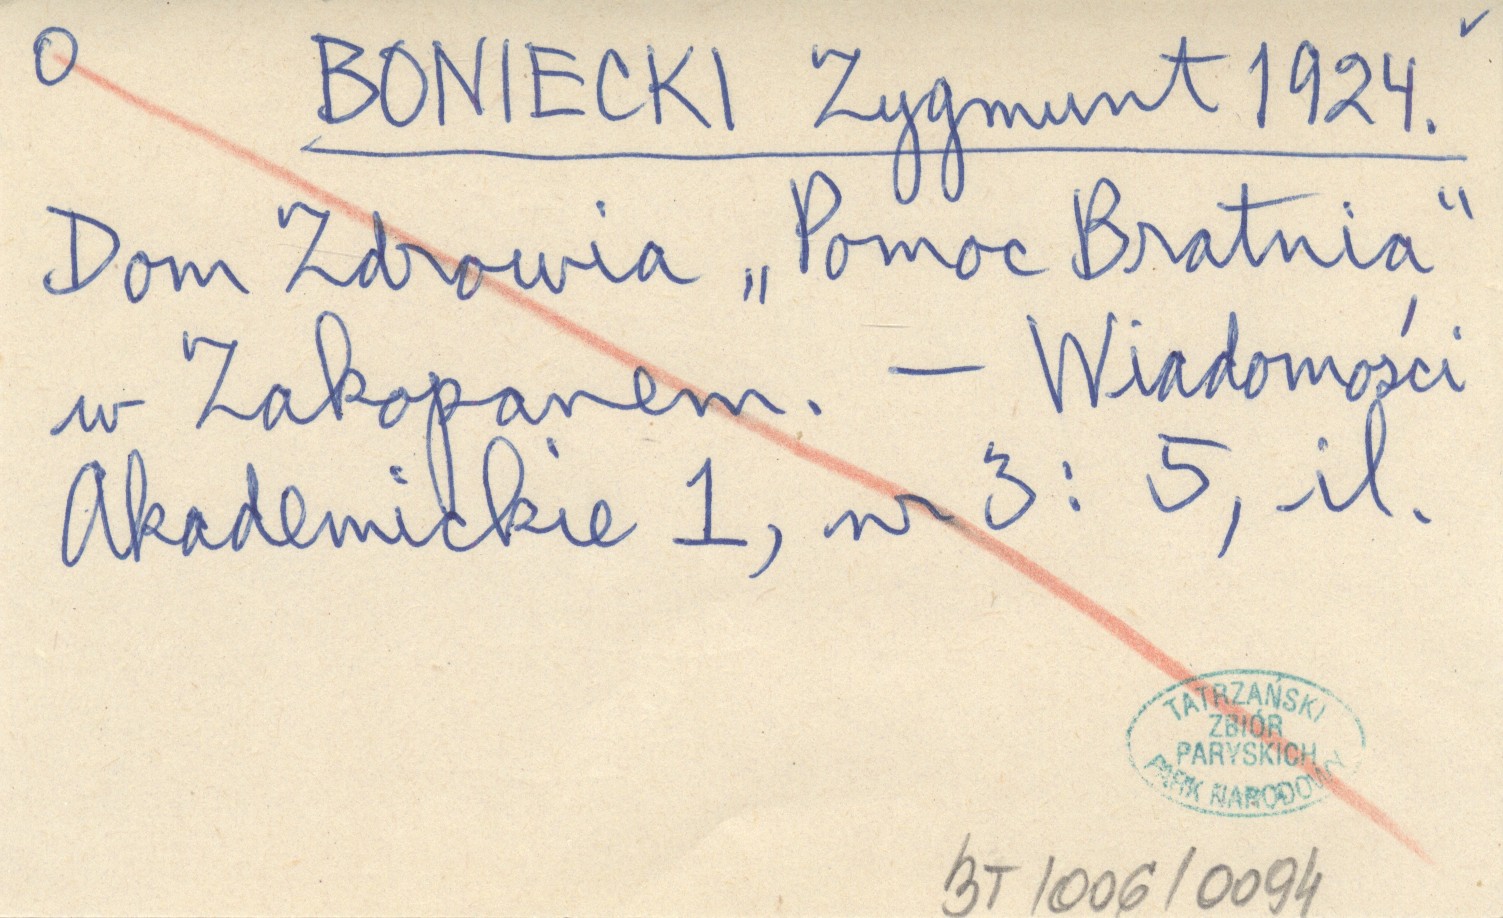 O BONIECKI Zygmunt 1924.
Dom Zdrowia „Pomoc Bratnia“
w Zakopanem. — Wiadomości
Akademickie 1, nr 3: 5, il.
TATRZAŃSKI
ZBIÓR
PARYSKICH
PARK NARODOWY
BT/006/0094